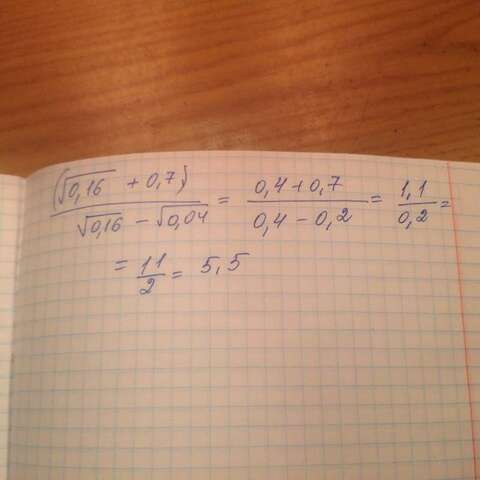 (√0,16 + 0,7) / (√0,16 − √0,04) = (0,4 + 0,7) / (0,4 − 0,2) = 1,1 / 0,2 =
= 11 / 2 = 5,5